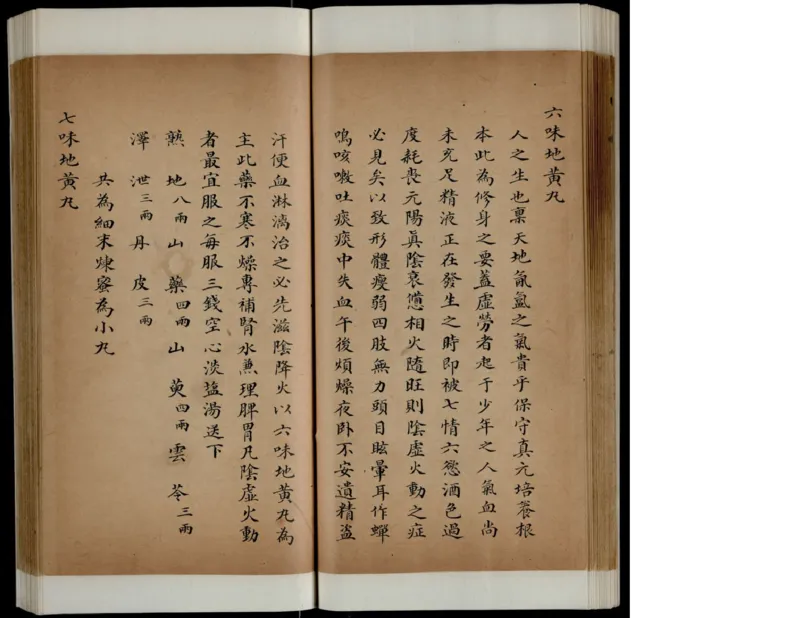 六味地黃丸
人之生也稟天地氤氳之氣貴乎保守真元培養根
本此為修身之要蓋虛勞者起于少年之人氣血尚
未充足精液正在發生之時即被七情六慾酒色過
度耗喪元陽眞陰衰憊相火隨旺則陰虛火動之症
必見矣以致形體瘦弱四肢無力頭目眩暈耳作蟬
鳴咳嗽吐痰痰中失血午後煩燥夜卧不安遺精盜
汗便血淋漓治之必先滋陰降火以六味地黃丸為
主此藥不寒不燥專補腎水兼理脾胃凡陰虛火動
者最宜服之每服三錢空心淡塩湯送下
熟地八兩山藥四兩山萸四兩雲苓三兩
澤泄三兩丹皮三兩
共為細末煉蜜為小丸
七味地黃丸